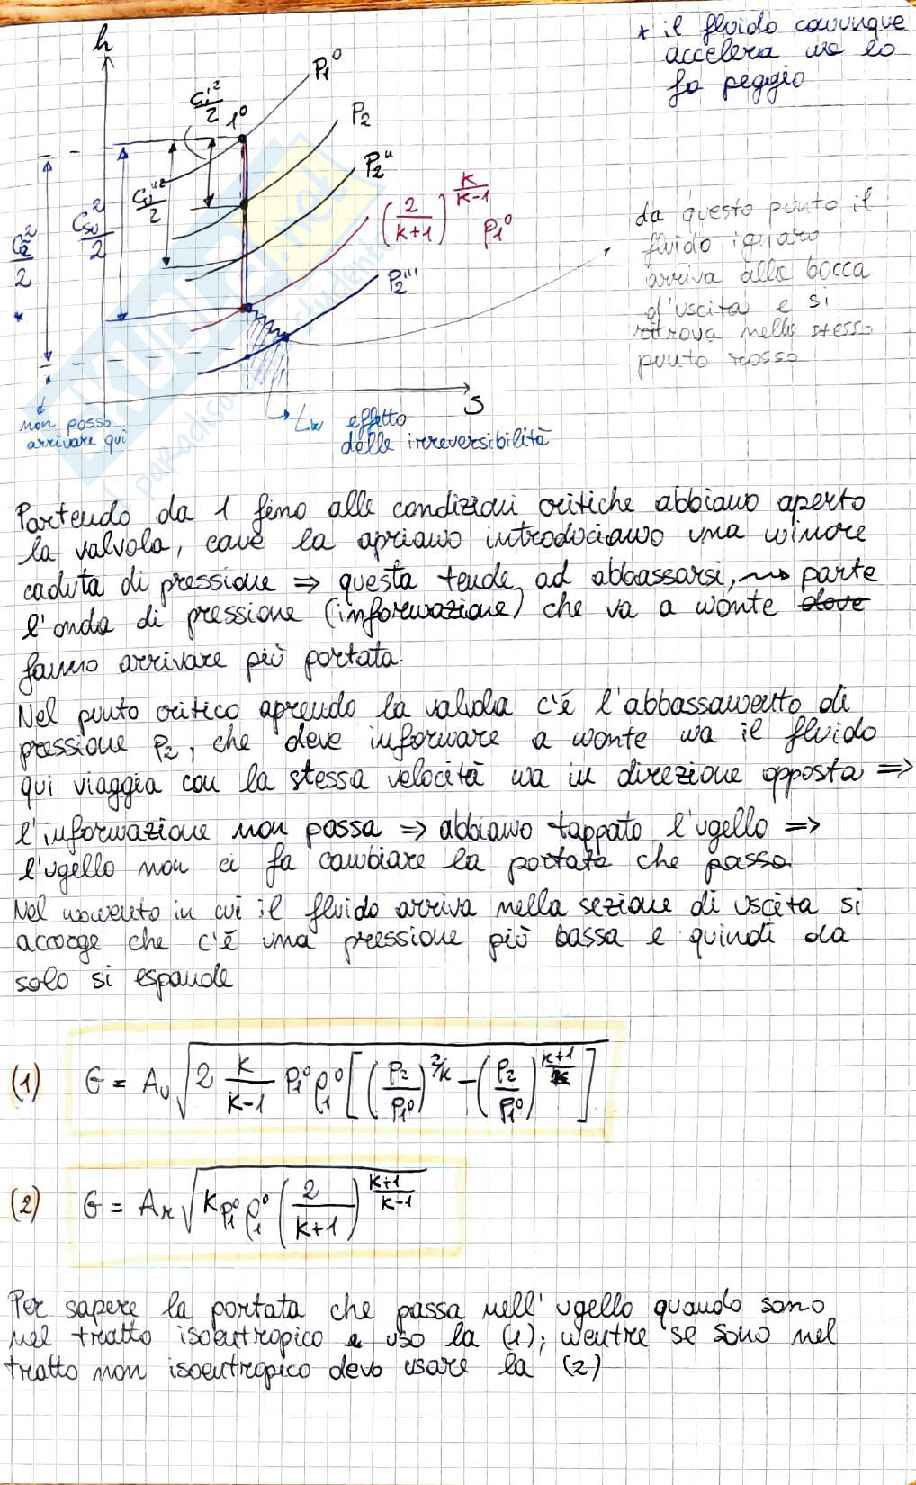 h
* il fluido comunque
accelera ma lo
fa peggio
P₁⁰
C₁'²/2
1⁰
P₂
P₂''
C₁''²/2
(2/(k+1))^(k/(k-1)) P₁⁰
C₂²/2
P₂'''
da questo punto il
fluido ignaro
arriva alla bocca
d'uscita e si
ritrova nello stesso
punto rosso
S
non posso
arrivare qui
Lw effetto
delle irreversibilità
Partendo da 1 fino alle condizioni critiche abbiamo aperto
la valvola, come la apriamo introduciamo una minore
caduta di pressione ⇒ questa tende ad abbassarsi, ⇝ parte
l'onda di pressione (informazione) che va a monte dove
fanno arrivare più portata.
Nel punto critico aprendo la valvola c'è l'abbassamento di
pressione P₂, che deve informare a monte ma il fluido
qui viaggia con la stessa velocità ma in direzione opposta ⇒
l'informazione non passa ⇒ abbiamo tappato l'ugello ⇒
l'ugello non ci fa cambiare la portata che passa.
Nel momento in cui il fluido arriva nella sezione di uscita si
accorge che c'è una pressione più bassa e quindi da
solo si espande
(1) G = Aᵤ √(2 k/(k-1) P₁⁰ ρ₁⁰ [(P₂/P₁⁰)^(2/k) - (P₂/P₁⁰)^((k+1)/k)])
(2) G = Aᵣ √(k P₁⁰ ρ₁⁰ (2/(k+1))^((k+1)/(k-1)))
Per sapere la portata che passa nell'ugello quando sono
nel tratto isoentropico uso la (1); mentre se sono nel
tratto non isoentropico devo usare la (2)